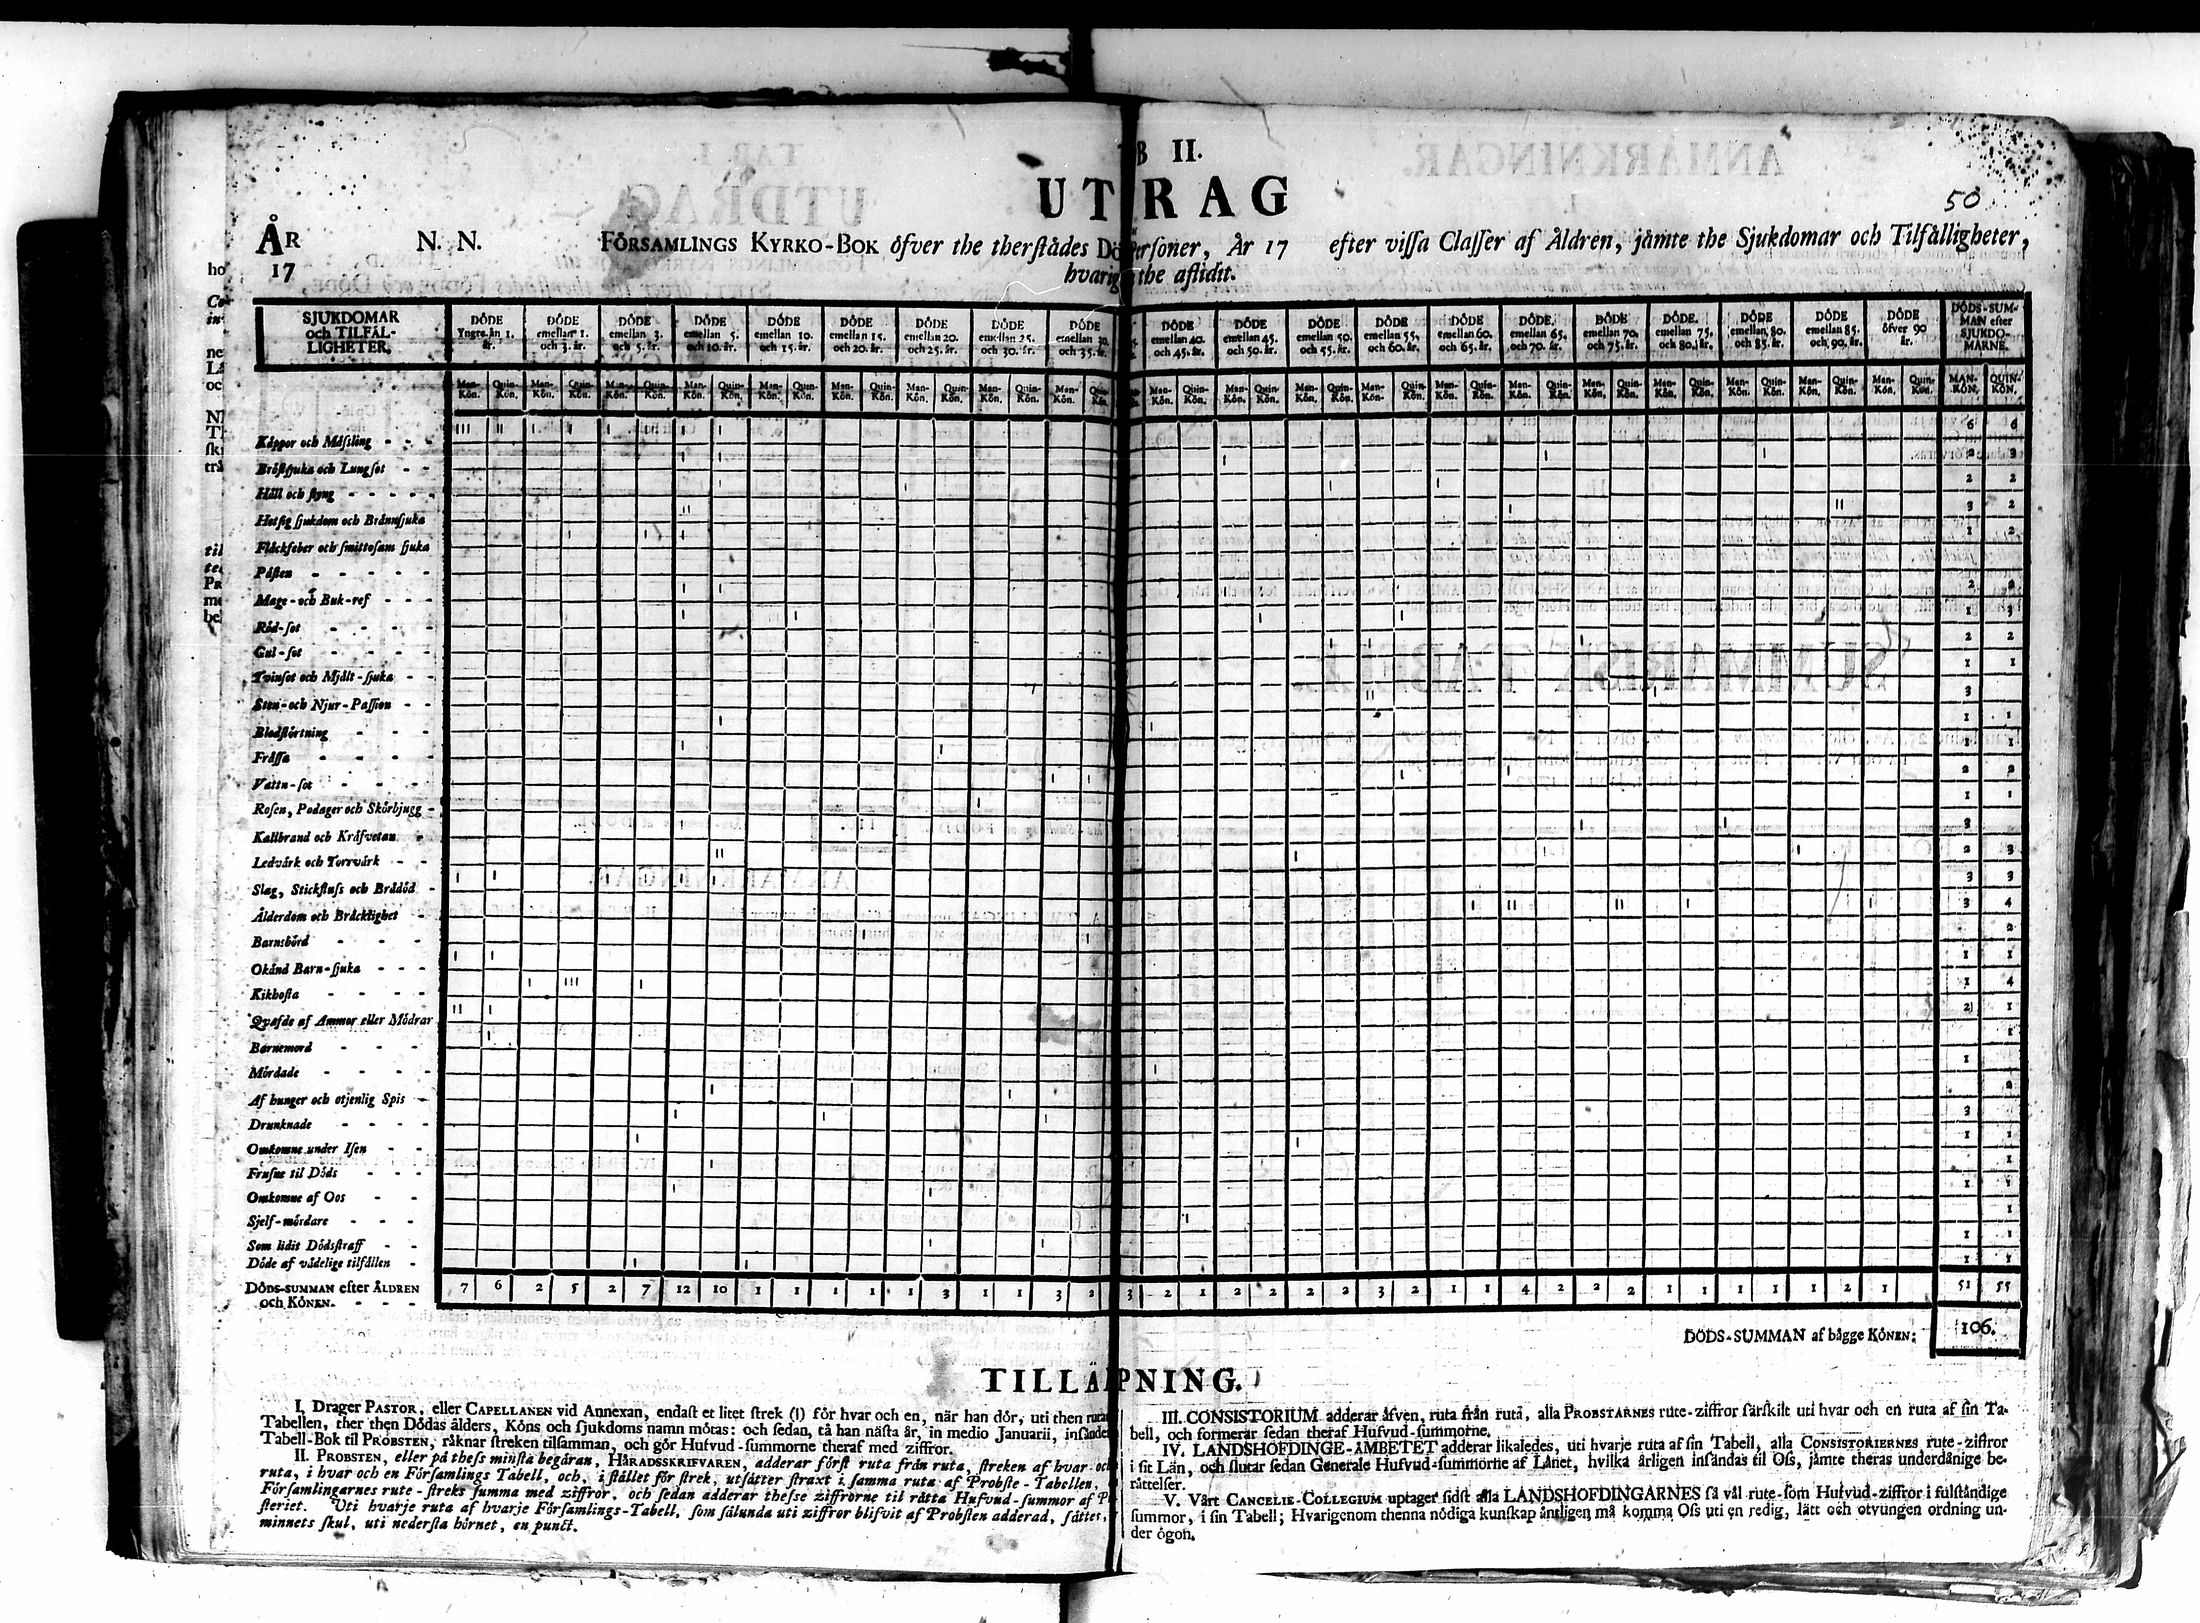 B II.
UT RAG
50
ÅR N. N. FÖRSAMLINGS KYRKO-BOK öfver the therstädes Dö ersoner, År 17 efter vissa Classer af Åldren, jämte the Sjukdomar och Tilfälligheter,
17 hvarig the aflidit.
SJUKDOMAR och TILFÄLLIGHETER.
DÖDE Yngre än 1. år.
DÖDE emellan 1. och 3. år.
DÖDE emellan 3. och 5. år.
DÖDE emellan 5. och 10. år.
DÖDE emellan 10. och 15. år.
DÖDE emellan 15. och 20. år.
DÖDE emellan 20. och 25. år.
DÖDE emellan 25. och 30. år.
DÖDE emellan 30. och 35. år.
DÖDE emellan 40. och 45. år.
DÖDE emellan 45. och 50. år.
DÖDE emellan 50. och 55. år.
DÖDE emellan 55. och 60. år.
DÖDE emellan 60. och 65. år.
DÖDE emellan 65. och 70. år.
DÖDE emellan 70. och 75. år.
DÖDE emellan 75. och 80. år.
DÖDE emellan 80. och 85. år.
DÖDE emellan 85. och 90. år.
DÖDE öfver 90 år.
DÖDS-SUMMAN efter SJUKDOMARNE.
MAN-KÖN. QUIN-KÖN.
Kåppor och Mässling - - - 6 6
Bröstsjuka och Lungsot - - 2 3
Håll och styng - - - - - 2 2
Hetsig sjukdom och Brännsjuka 3 2
Fläckfeber och smittosam sjuka 1 2
Pästen - - - - -
Mage-och Buk-ref - - - 2 2
Röd-sot - - - - 1 3
Gul-sot - - - - 2 2
Tvinsot och Mjält-sjuka - - 1 1
Sten-och Njur-Passion - - 3
Blodstörtning - - - 1 1
Frässa - - - - 1 1
Vattu-sot - - - - 2 2
Rosen, Podager och Skörbjugg - 1 1
Kallbrand och Kräfvetan - 3
Ledvärk och Torrvärk - - 2 3
Slag, Stickfluss och Brådöd - 3 3
Ålderdom och Bräcklighet - 3 4
Barnsbörd - - - 2
Okänd Barn-sjuka - - - 1 1
Kikhosta - - - - 1 4
Qvafde af Ammor eller Mödrar 2 1
Barnemord - - - 1
Mördade - - - - 1
Af hunger och otjenlig Spis - 2
Drunknade - - - - 3
Omkomne under Isen - - 1 1
Frusne til Döds - - - 1
Omkomne af Oos - - 1 1
Sjelf-mördare - - - 1
Som lidit Dödsstraff - - 1 1
Döde af vådelige tilfällen - 1 1
DÖDS-SUMMAN efter ÅLDREN 7 6 2 5 2 7 12 10 1 1 1 1 1 3 1 1 3 2 3 2 1 2 2 2 2 3 2 1 1 4 2 2 2 1 1 1 1 1 2 1 51 55
och KÖNEN. - - -
DÖDS-SUMMAN af bägge KÖNEN: 106.
TILLÄ PNING.
I. Drager PASTOR, eller CAPELLANEN vid Annexan, endast et litet strek (I) för hvar och en, när han dör, uti then ruta
Tabellen, ther then Dödas ålders, Köns och sjukdoms namn mötas: och sedan, tå han nästa år, in medio Januarii, insänder
Tabell-Bok til PROBSTEN, räknar streken tilsamman, och gör Hufvud-summorne theraf med ziffror.
II. PROBSTEN, eller på thess minsta begäran, HÄRADSSKRIFVAREN, adderar först ruta från ruta, streken af hvar och
ruta, i hvar och en Församlings Tabell, och, i stället för strek, utsätter straxt i samma ruta af Probste-Tabellen,
Församlingarnes rute-streks summa med ziffror, och sedan adderar thesse ziffrorne til rätta Hufvud-summor af P
steriet. Uti hvarje ruta af hvarje Församlings-Tabell, som sålunda uti ziffror blifvit af Probsten adderad, sättes,
minnets skul, uti nedersta hörnet, en punct.
III. CONSISTORIUM adderar äfven, ruta från ruta, alla PROBSTARNES rute-ziffror särskilt uti hvar och en ruta af sin Ta-
bell, och formerar sedan theraf Hufvud-summorne.
IV. LANDSHÖFDINGE-ÄMBETET adderar likaledes, uti hvarje ruta af sin Tabell, alla CONSISTORIERNES rute-ziffror
i sit Län, och slutar sedan Generale Hufvud-summorne af Länet, hvilka årligen insändas til Oss, jämte theras underdånige be-
rättelser.
V. Vårt CANCELIE-COLLEGIUM uptager sidst alla LANDSHÖFDINGARNES så väl rute-som Hufvud-ziffror i fulständige
summor, i sin Tabell; Hvarigenom thenna nödiga kunskap äntligen må komma Oss uti en redig, lätt och otvungen ordning un-
der ögon.